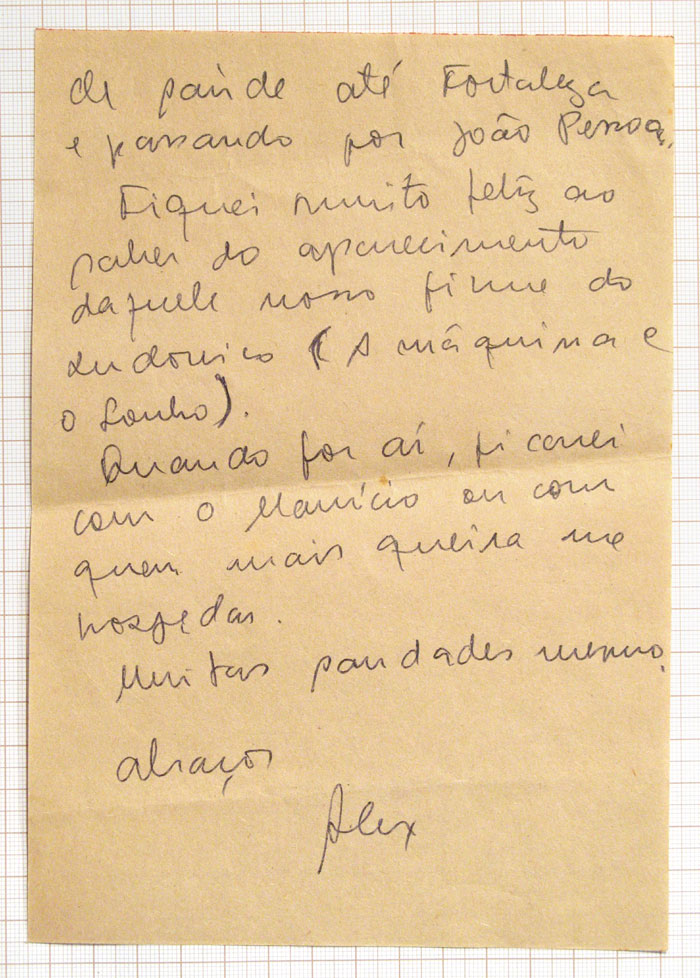 de saúde até Fortaleza
e passando por João Pessoa.
Fiquei muito feliz ao
saber do aparecimento
daquele nosso filme do
Ludovico (A máquina e
o Sonho).
Quando for aí, ficarei
com o Maurício ou com
quem mais queira me
hospedar.
Muitas saudades mesmo,
abraços
Alex